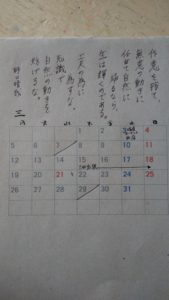 作為を捨て、
無意の動きに
任せ、自然に
帰るなら、
生は輝くのである。
工夫の為に
為すな。
知識で
自然の動きを
妨げるな。
野口晴哉
三
月 火 水 木 金 土 日
1 2 3 4
5 6 7 8 9 10 11
12 13 14 15 16 17 18
19 20 21 22 23 24 25
26 27 28 29 30 31